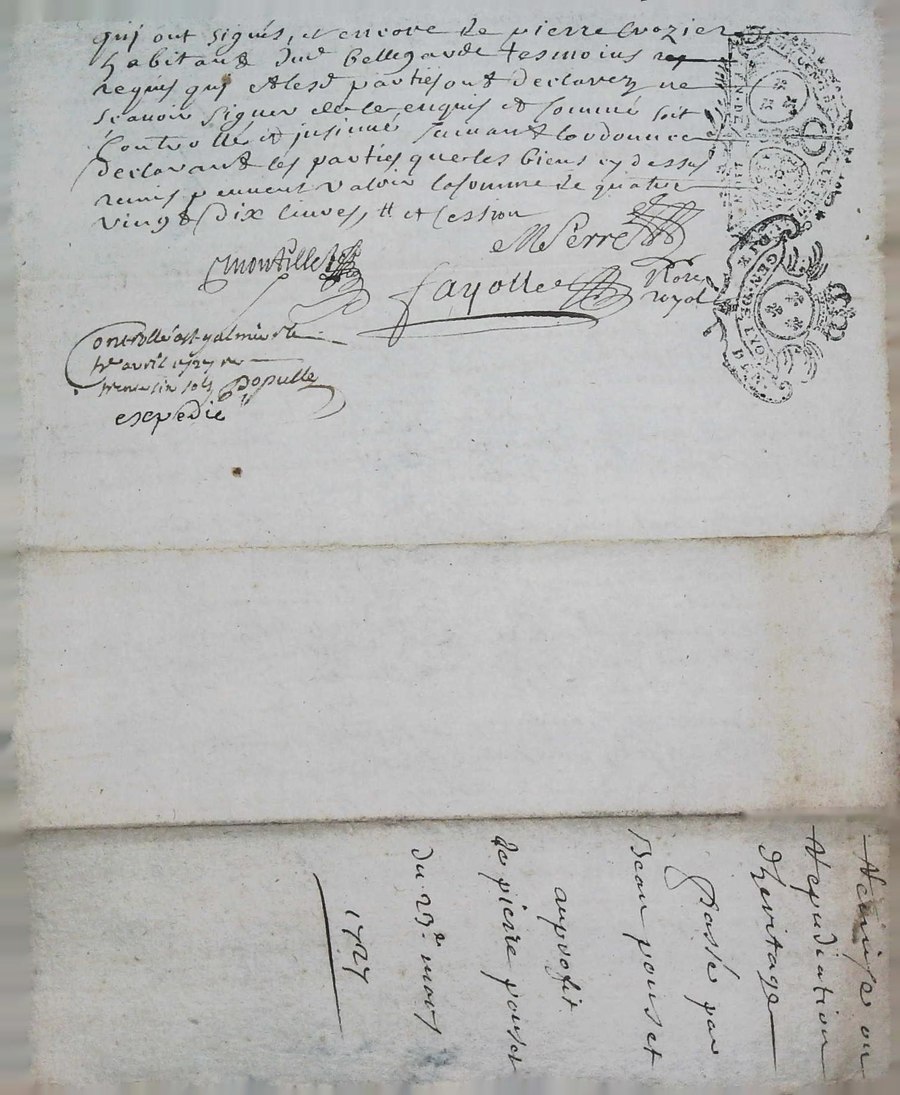 qui ont signés, et encore de pierre Crozier
habitant dud bellegarde tesmoins
requis qui et lesd parties ont declarez ne
scavoir signer de ce enquis et sommé soit
Controllé et insinué suivant lordonnee
declarant les parties que les biens cy dessus
remis peuvent valoir la somme de quatre
vingt dix livres, tt et cession
Montillet
M Serre
fayolle
Nore
royal
Controllé a st galmier le
avril 1727 re
trente six sols Populle
expedié
Remise ou
Repudiation
dheritage
Passé par
Jean pouset
au profit
de pierre pouset
du 23e mars
1727